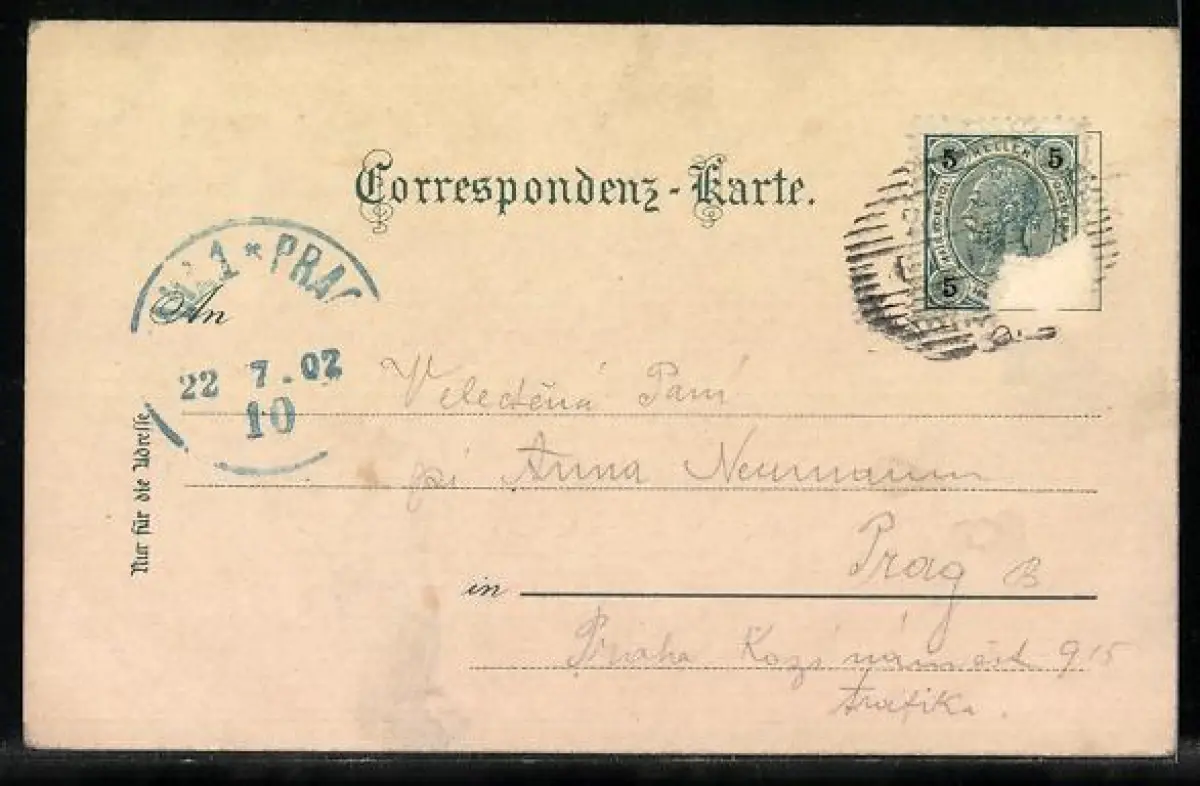 Correspondenz-Karte.
5 HELLER 5
5
1 * PRAG
An
22 7.02
10
Velectěná Paní
pí Anna Neumann
Nur für die Adresse
Prag B
in
Praha Kozí náměstí 915
trafika.